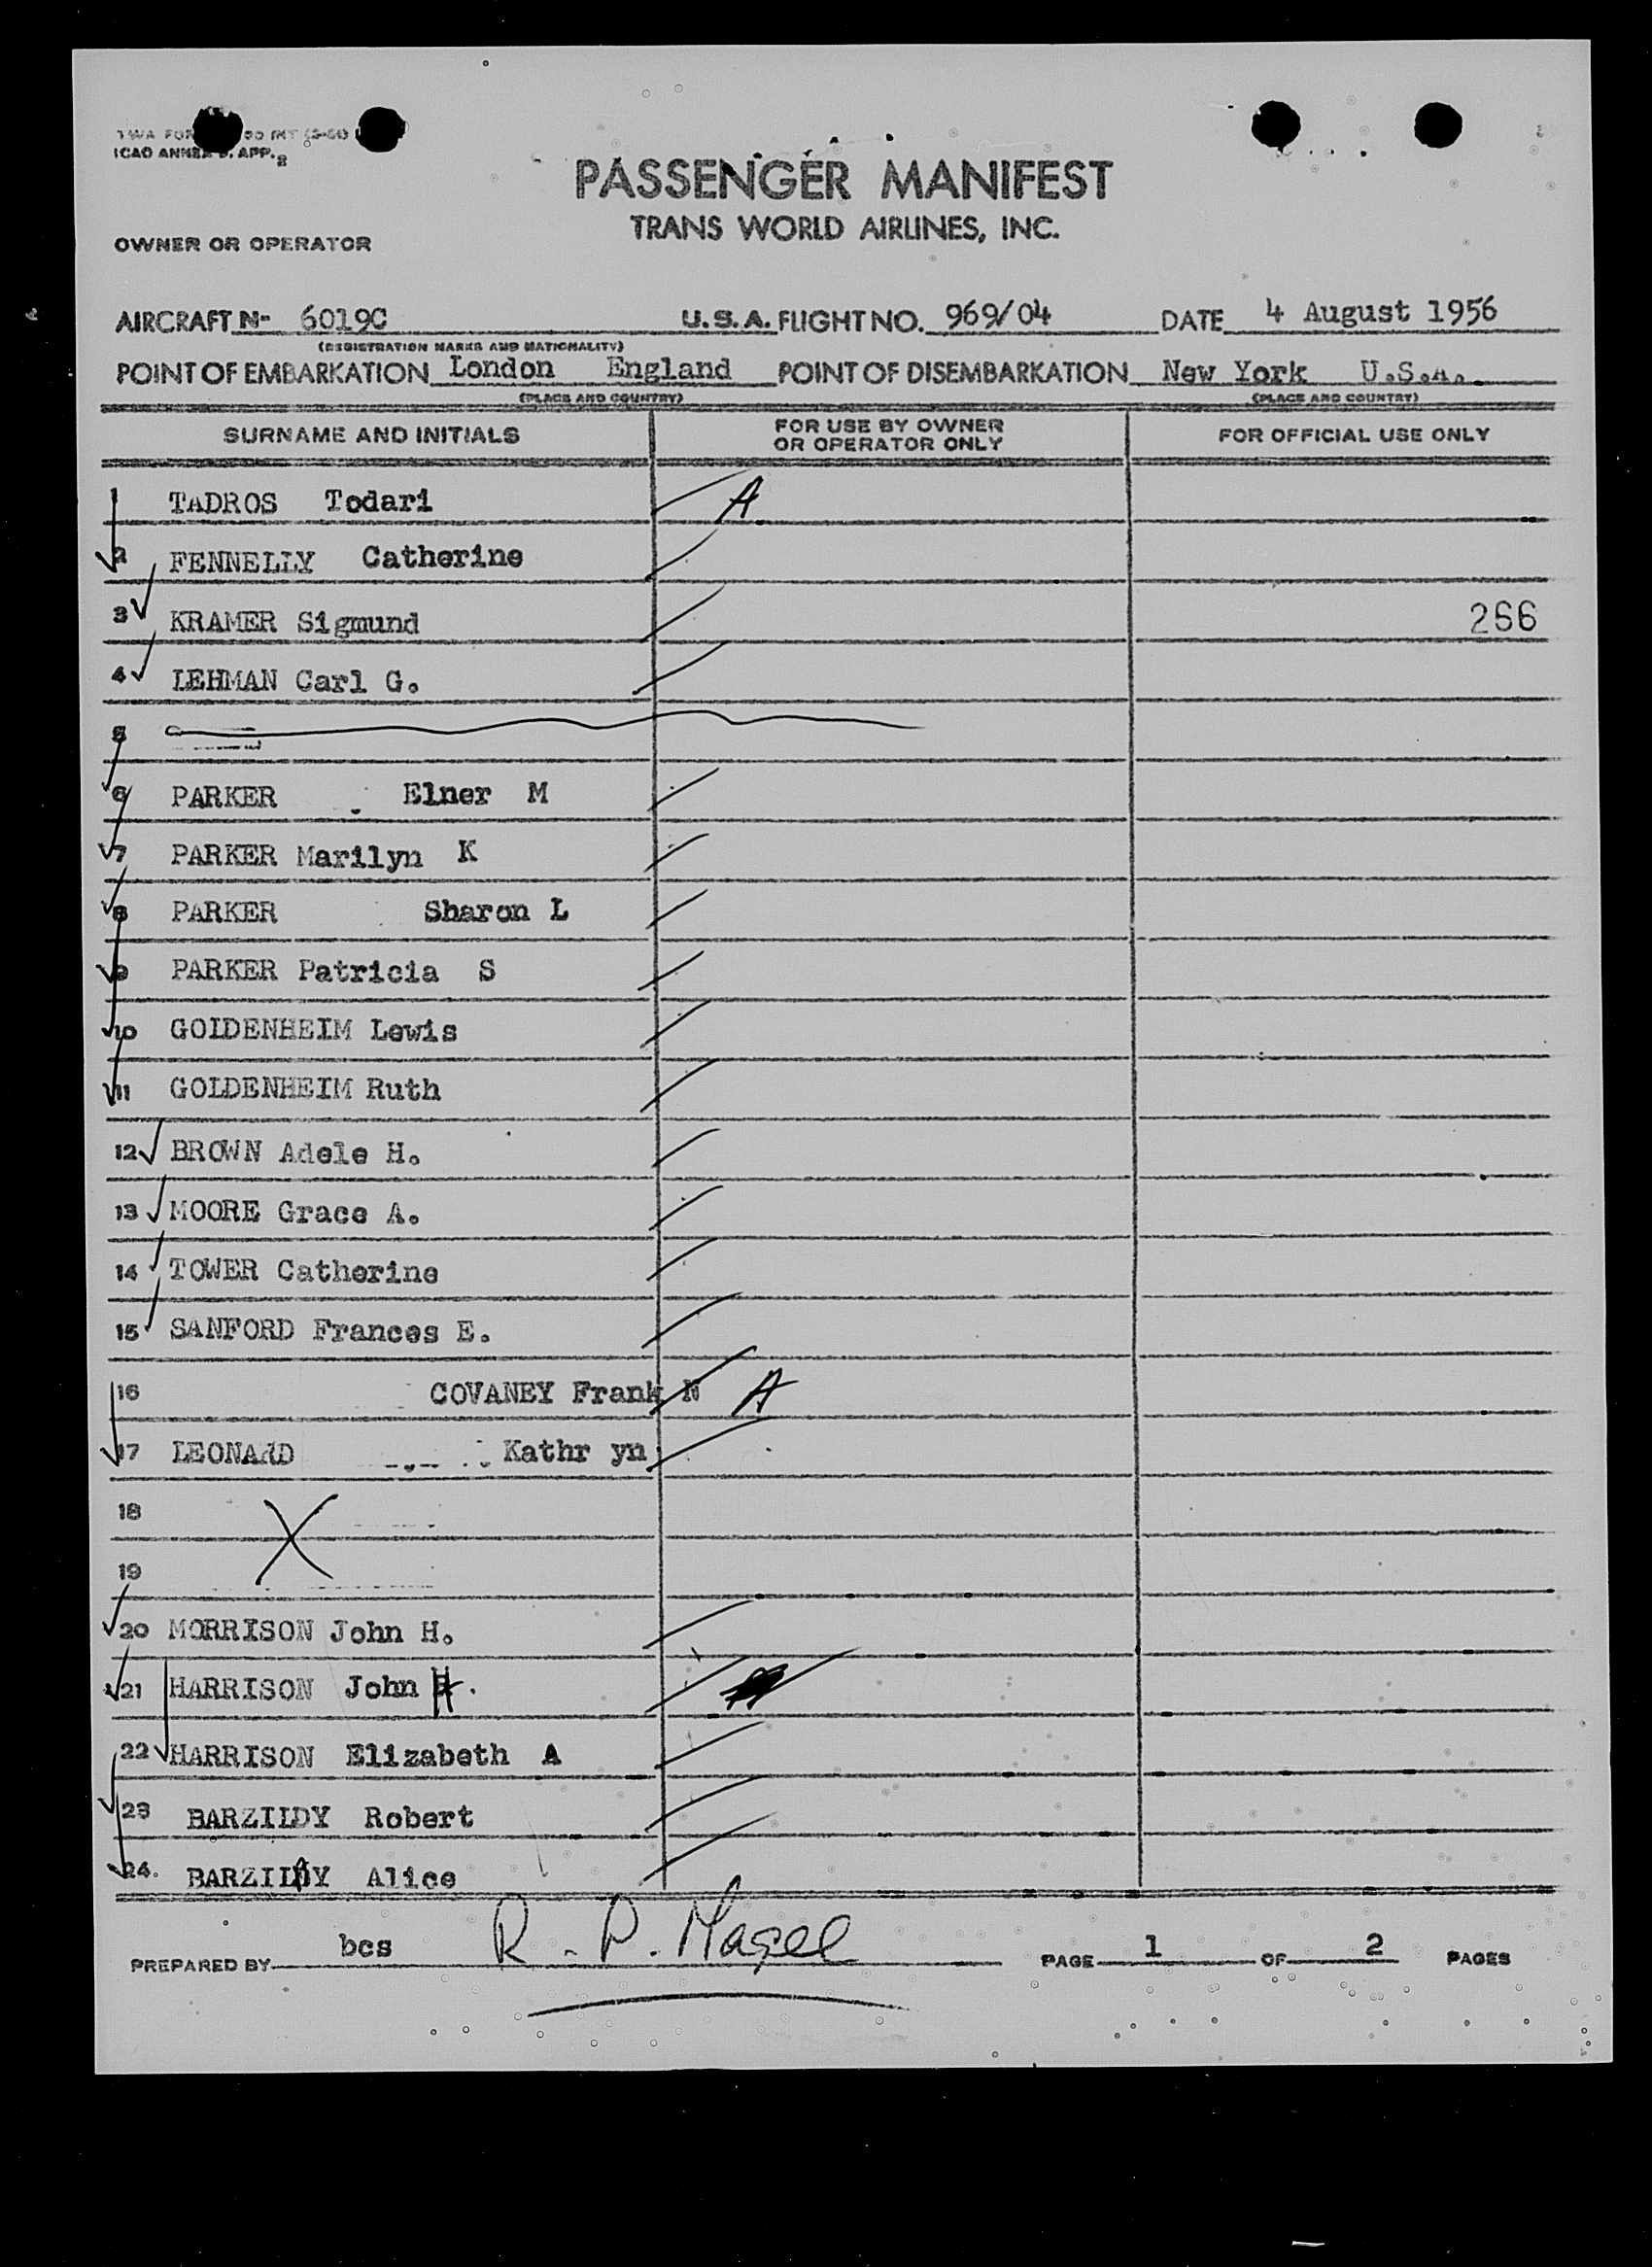 ICAO ANNEX 9. APP. 2
PASSENGER MANIFEST
TRANS WORLD AIRLINES, INC.
OWNER OR OPERATOR
AIRCRAFT N- 6019C U.S.A. FLIGHT NO. 969/04 DATE 4 August 1956
(REGISTRATION MARKS AND NATIONALITY)
POINT OF EMBARKATION London England POINT OF DISEMBARKATION New York U.S.A.
(PLACE AND COUNTRY) (PLACE AND COUNTRY)
SURNAME AND INITIALS FOR USE BY OWNER OR OPERATOR ONLY FOR OFFICIAL USE ONLY
1 TADROS Todari A
2 FENNELLY Catherine
3 KRAMER Sigmund 266
4 LEHMAN Carl G.
5
6 PARKER Elner M
7 PARKER Marilyn K
8 PARKER Sharon L
9 PARKER Patricia S
10 GOLDENHEIM Lewis
11 GOLDENHEIM Ruth
12 BROWN Adele H.
13 MOORE Grace A.
14 TOWER Catherine
15 SANFORD Frances E.
16 COVANEY Frank N A
17 LEONARD Kathr yn
18
19
20 MORRISON John H.
21 HARRISON John H.
22 HARRISON Elizabeth A
23 BARZILDY Robert
24. BARZILAY Alice
PREPARED BY bcs R. P. PAGE 1 OF 2 PAGES